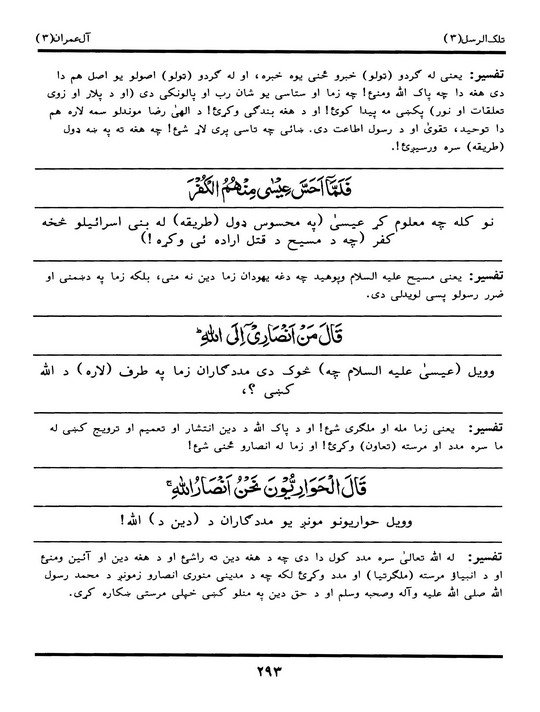 تلک الرسل(٣)
آل عمران(٣)
تفسیر: یعنی له ګردو (تولو) خبرو څنی یوه خبره، او له ګردو (تولو) اصولو یو اصل هم دا
دی هغه دا چه پاک الله ومنئ! چه زما او ستاسی یو شان رب او پالونکی دی (او د پلار او زوی
تعلقات او نور) پکښی مه پیدا کوئ! او د هغه بندګی وکړئ! د الهیٰ رضا موندلو سمه لاره هم
دا توحید، تقویٰ او د رسول اطاعت دی. ښائی چه تاسی پری لاړ شئ! چه هغه ته په ښه ډول
(طریقه) سره ورسیږئ!.
فَلَمَّآ اَحَسَّ عِیْسٰی مِنْهُمُ الْکُفْرَ
نو کله چه معلوم کړ عیسیٰ (په محسوس ډول (طریقه) له بنی اسرائیلو څخه
کفر (چه د مسیح د قتل اراده ئی وکړه !)
تفسیر: یعنی مسیح علیه السلام وپوهید چه دغه یهودان زما دین نه منی، بلکه زما په دښمنی او
ضرر رسولو پسی لویدلی دی.
قَالَ مَنْ اَنْصَارِیْۤ اِلَی اللّٰهِ ؕ
وویل (عیسیٰ علیه السلام چه) څوک دی مددګاران زما په طرف (لاره) د الله
کښی ؟،
تفسیر: یعنی زما مله او ملګری شئ! او د پاک الله د دین انتشار او تعمیم او ترویج کښی له
ما سره مدد او مرسته (تعاون) وکړئ! او زما له انصارو څنی شئ!
قَالَ الْحَوَارِیُّوْنَ نَحْنُ اَنْصَارُ اللّٰهِ ۚ
وویل حواریونو مونږ یو مددګاران د (دین د) الله!
تفسیر: له الله تعالیٰ سره مدد کول دا دی چه د هغه دین ته راشئ او د هغه دین او آئین ومنئ
او د انبیاؤ مرسته (ملګرتیا) او مدد وکړئ لکه چه د مدینی منوری انصارو زمونږ د محمد رسول
الله صلی الله علیه وآله وصحبه وسلم او د حق دین په منلو کښی خپلی مرستی ښکاره کړی.
٢٩٣